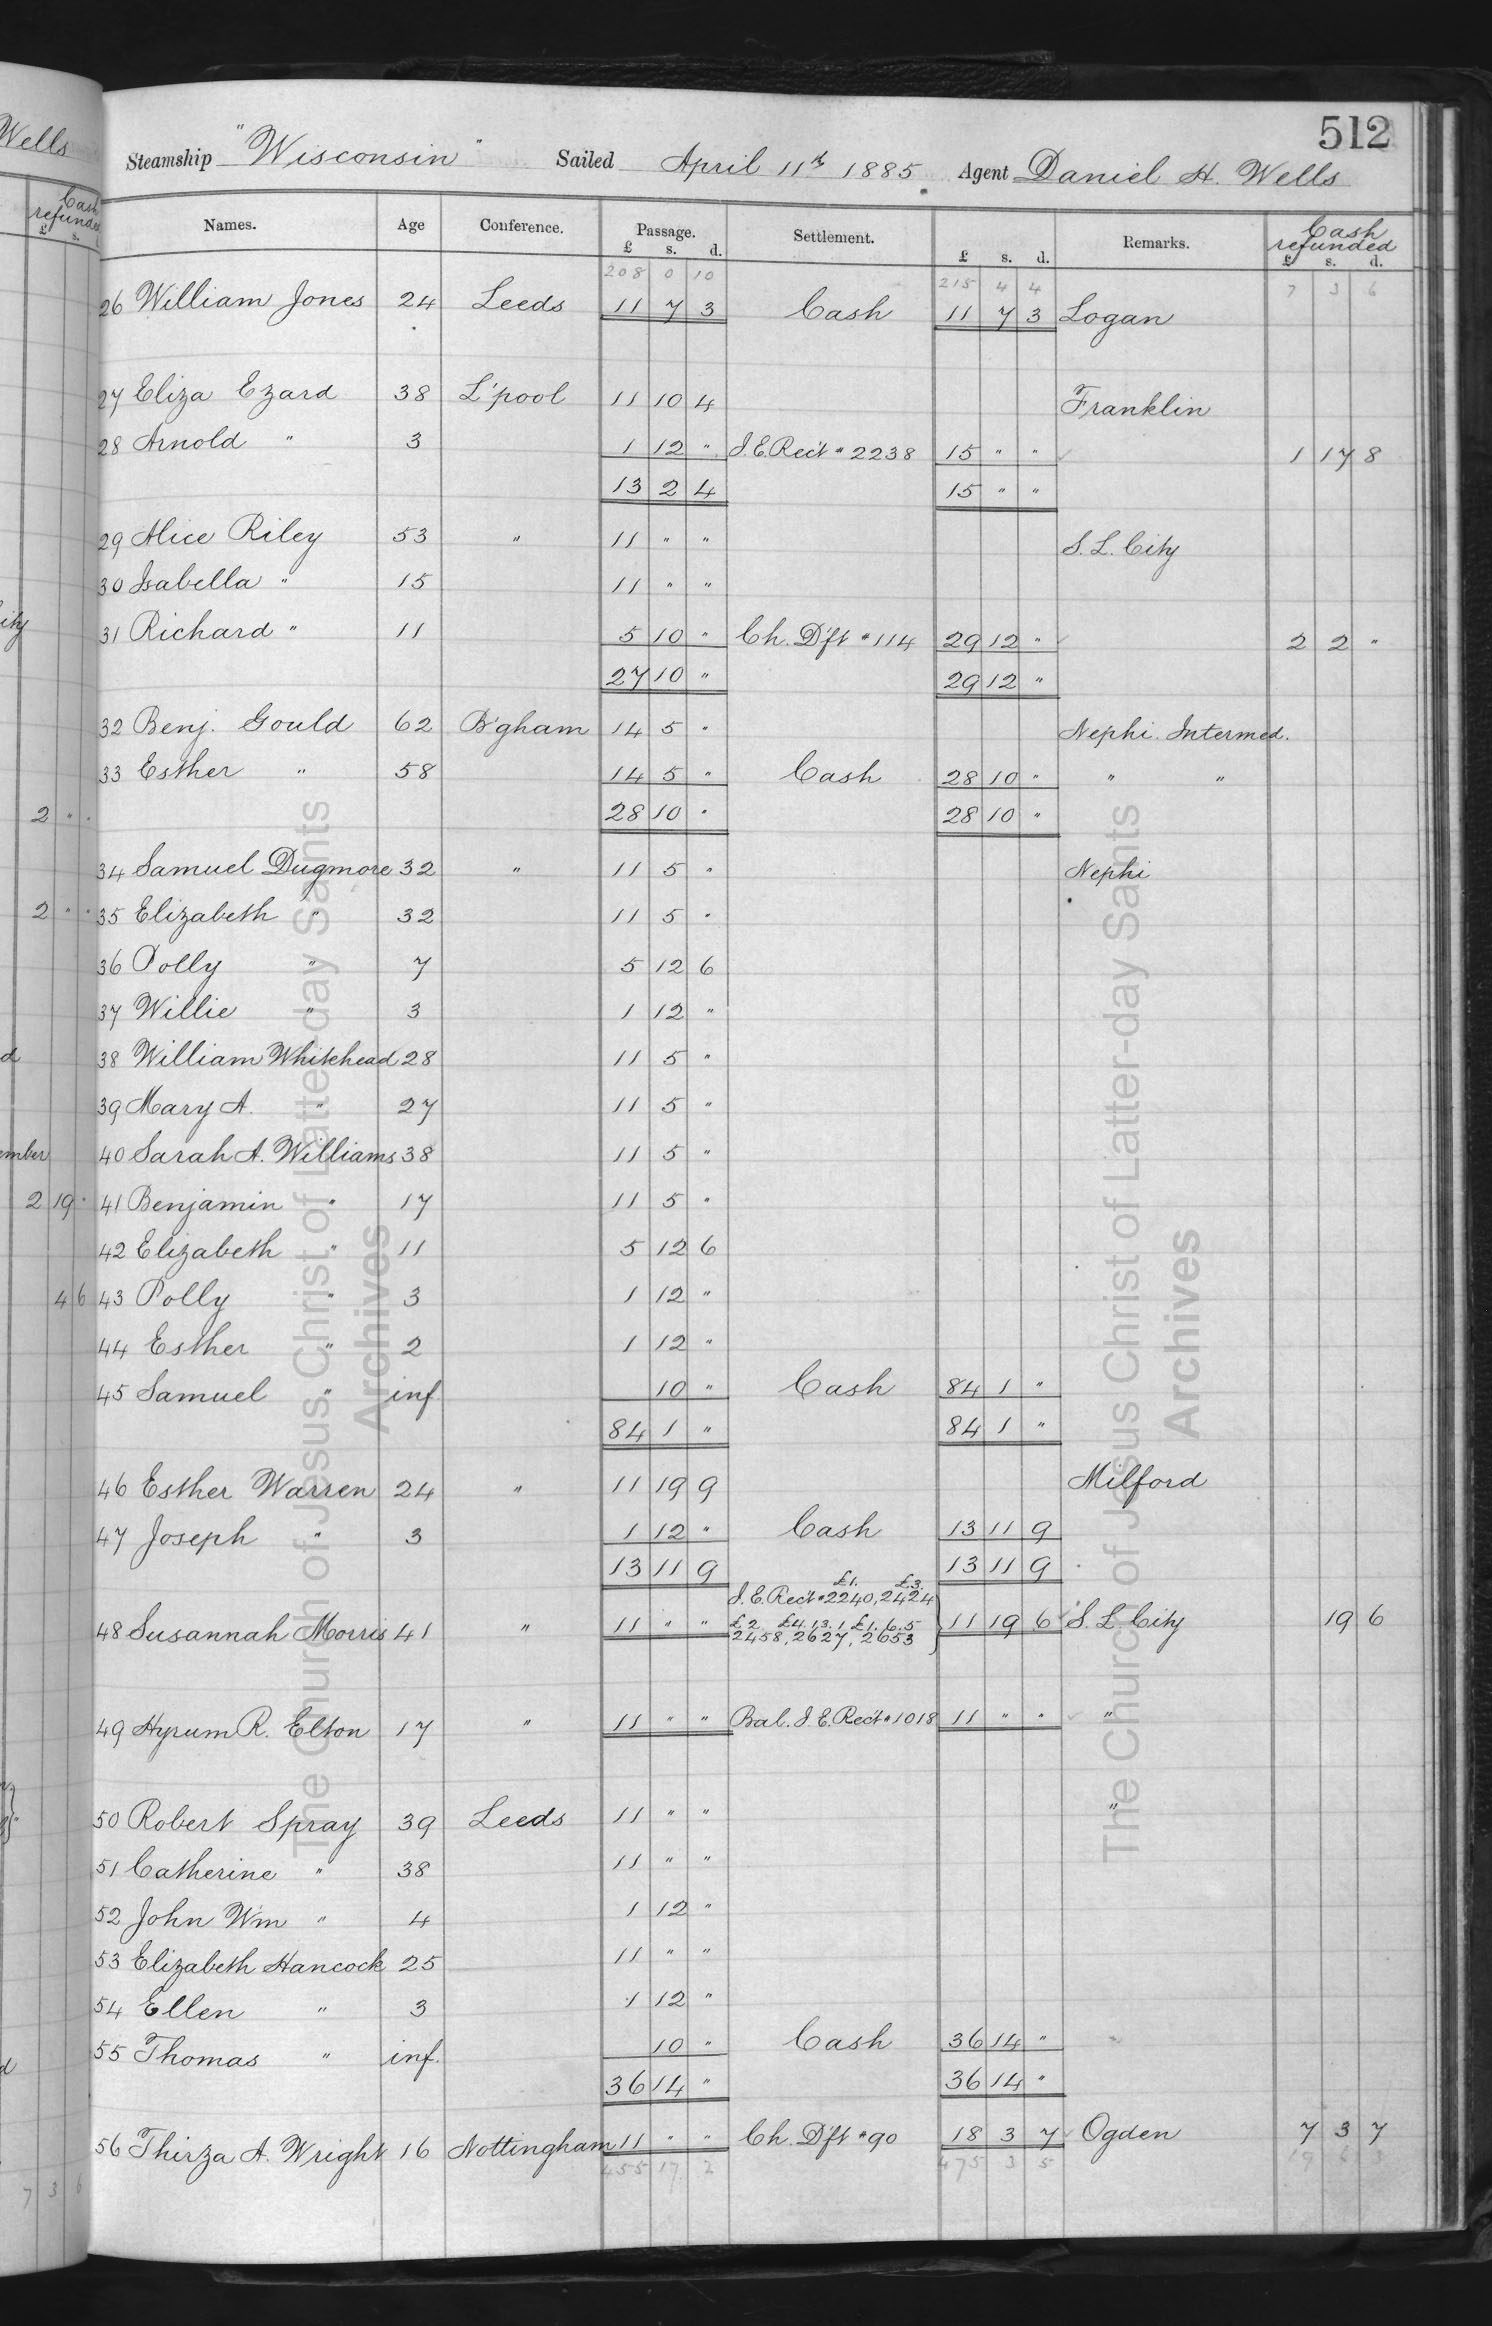 512
Steamship "Wisconsin" Sailed April 11th 1885 Agent Daniel H. Wells
Names. Age Conference. Passage. Settlement. Remarks. Cash refunded
£ s. d. £ s. d. £ s. d.
208 0 10 215 4 4 7 3 6
26 William Jones 24 Leeds 11 7 3 Cash 11 7 3 Logan
27 Eliza Ezard 38 L'pool 11 10 4 Franklin
28 Arnold " 3 1 12 " I.E. Rec't # 2238 15 " " 1 17 8
13 2 4 15 " "
29 Alice Riley 53 " 11 " " S. L. City
30 Isabella " 15 11 " "
31 Richard " 11 5 10 " Ch. D'ft # 114 29 12 " 2 2 "
27 10 " 29 12 "
32 Benj. Gould 62 B'gham 14 5 " Nephi. Intermed.
33 Esther " 58 14 5 " Cash 28 10 " " "
28 10 " 28 10 "
34 Samuel Dugmore 32 " 11 5 " Nephi
35 Elizabeth " 32 11 5 "
36 Polly " 7 5 12 6
37 Willie " 3 1 12 "
38 William Whitehead 28 11 5 "
39 Mary A. " 27 11 5 "
40 Sarah A. Williams 38 11 5 "
41 Benjamin " 17 11 5 "
42 Elizabeth " 11 5 12 6
43 Polly " 3 1 12 "
44 Esther " 2 1 12 "
45 Samuel " inf. 10 " Cash 84 1 "
84 1 " 84 1 "
46 Esther Warren 24 " 11 19 9 Milford
47 Joseph " 3 1 12 " Cash 13 11 9
13 11 9 13 11 9
£1. £3.
I.E. Rec't # 2240, 2424
48 Susannah Morris 41 " 11 " " £2. £4.13.1 £1.6.5 11 19 6 S. L. City 19 6
2458, 2627, 2653
49 Hyrum R. Elton 17 " 11 " " Bal. I.E. Rec't # 1018 11 " " "
50 Robert Spray 39 Leeds 11 " " "
51 Catherine " 38 11 " "
52 John Wm " 4 1 12 "
53 Elizabeth Hancock 25 11 " "
54 Ellen " 3 1 12 "
55 Thomas " inf. 10 " Cash 36 14 "
36 14 " 36 14 "
56 Thirza A. Wright 16 Nottingham 11 " " Ch. D'ft # 90 18 3 7 Ogden 7 3 7
455 17 2 475 3 5 19 6 3
Wells
Cash refunded
£ s.
2 " "
2 " "
2 19 "
4 6
7 3 6
The Church of Jesus Christ of Latter-day Saints
Archives
The Church of Jesus Christ of Latter-day Saints
Archives